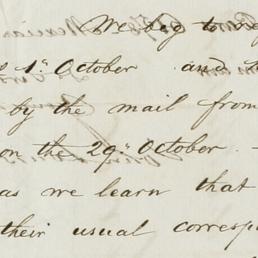 We beg to
1st October and
by the mail from
on the 29th October. -
as we learn that
their usual corresp